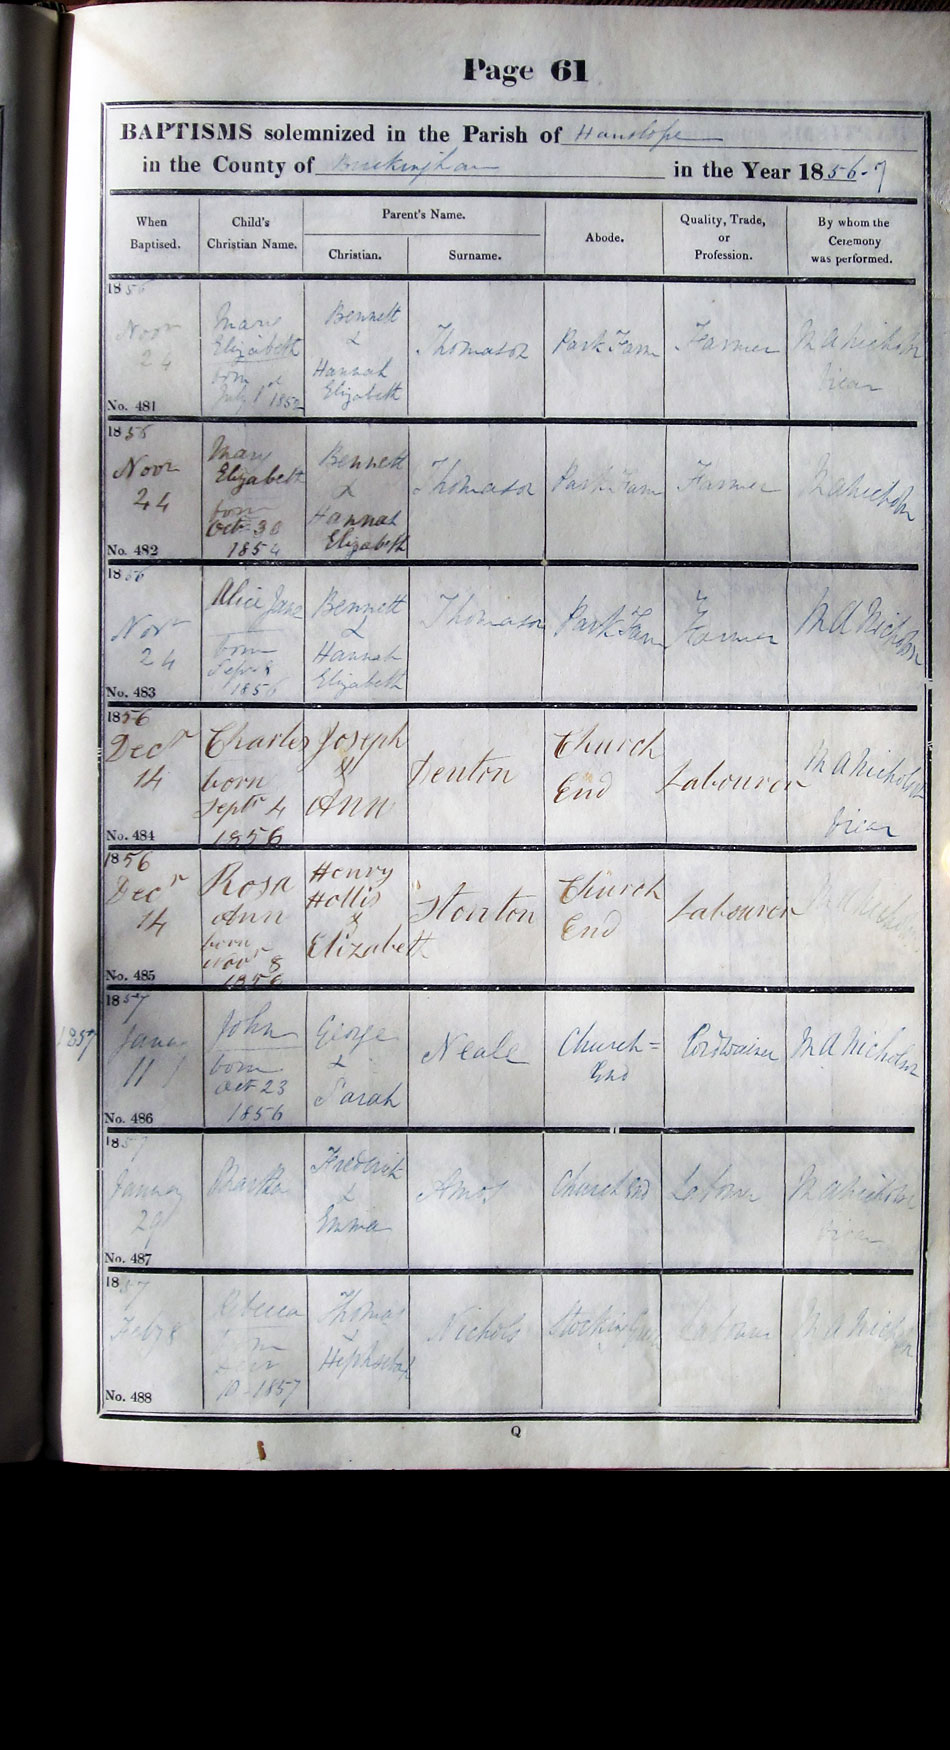 Page 61
BAPTISMS solemnized in the Parish of Hanslope
in the County of Buckingham in the Year 1856-7
When Baptised. Child's Christian Name. Parent's Name. Christian. Surname. Abode. Quality, Trade, or Profession. By whom the Ceremony was performed.
1856
Novr 24
Mary Elizabeth
born July 1st
Bennett & Hannah Elizabeth
Thomason
Park Farm
Farmer
M A Nicholson
Vicar
No. 481
1856
Novr 24
Mary Elizabeth
born Oct 30 1854
Bennett & Hannah Elizabeth
Thomason
Park Farm
Farmer
M A Nicholson
No. 482
1856
Novr 24
Alice Jane
born Sepr 8 1856
Bennett & Hannah Elizabeth
Thomason
Park Farm
Farmer
M A Nicholson
No. 483
1856
Decr 14
Charles
born Septr 4 1856
Joseph & Ann
Denton
Church End
Labourer
M A Nicholson
Vicar
No. 484
1856
Decr 14
Rosa Ann
born Novr 8 1856
Henry Hollis & Elizabeth
Church End
Labourer
M A Nicholson
No. 485
1857
1857
11
John
born Oct 23 1856
George & Sarah
Neale
Church=End
Cordwainer
M A Nicholson
No. 486
1857
Frederick & Emma
Amos
Church End
Labourer
M A Nicholson
Vicar
No. 487
1857
Feby 8
Rebecca
born
10 1857
Thomas
Nichols
Labourer
M A Nicholson
No. 488
Q